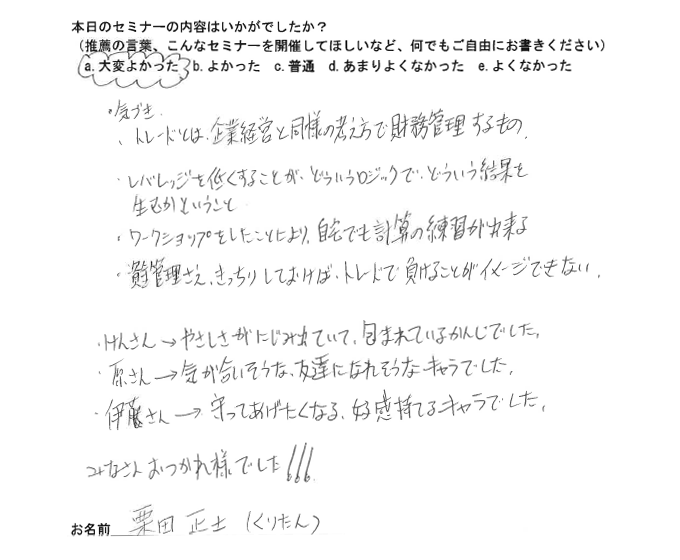 本日のセミナーの内容はいかがでしたか？
（推薦の言葉、こんなセミナーを開催してほしいなど、何でもご自由にお書きください）
a. 大変よかった　b. よかった　c. 普通　d. あまりよくなかった　e. よくなかった
・気づき
、トレードとは、企業経営と同様の考え方で財務管理するもの、
・レバレッジを低くすることが、どういうロジックで、どういう結果を
生むかということ
・ワークショップをしたことにより、自宅でも計算の練習が出来る
・資管理さえ、きっちりしておけば、トレードで負けることがイメージできない、
・けんさん→やさしさがにじみ出ていて、包まれているかんじでした。
・原さん→気が合いそうな、友達になれそうなキャラでした。
・伊藤さん→守ってあげたくなる、好感持てるキャラでした。
みなさんおつかれ様でした!!!
お名前　栗田 正士（くりたん）